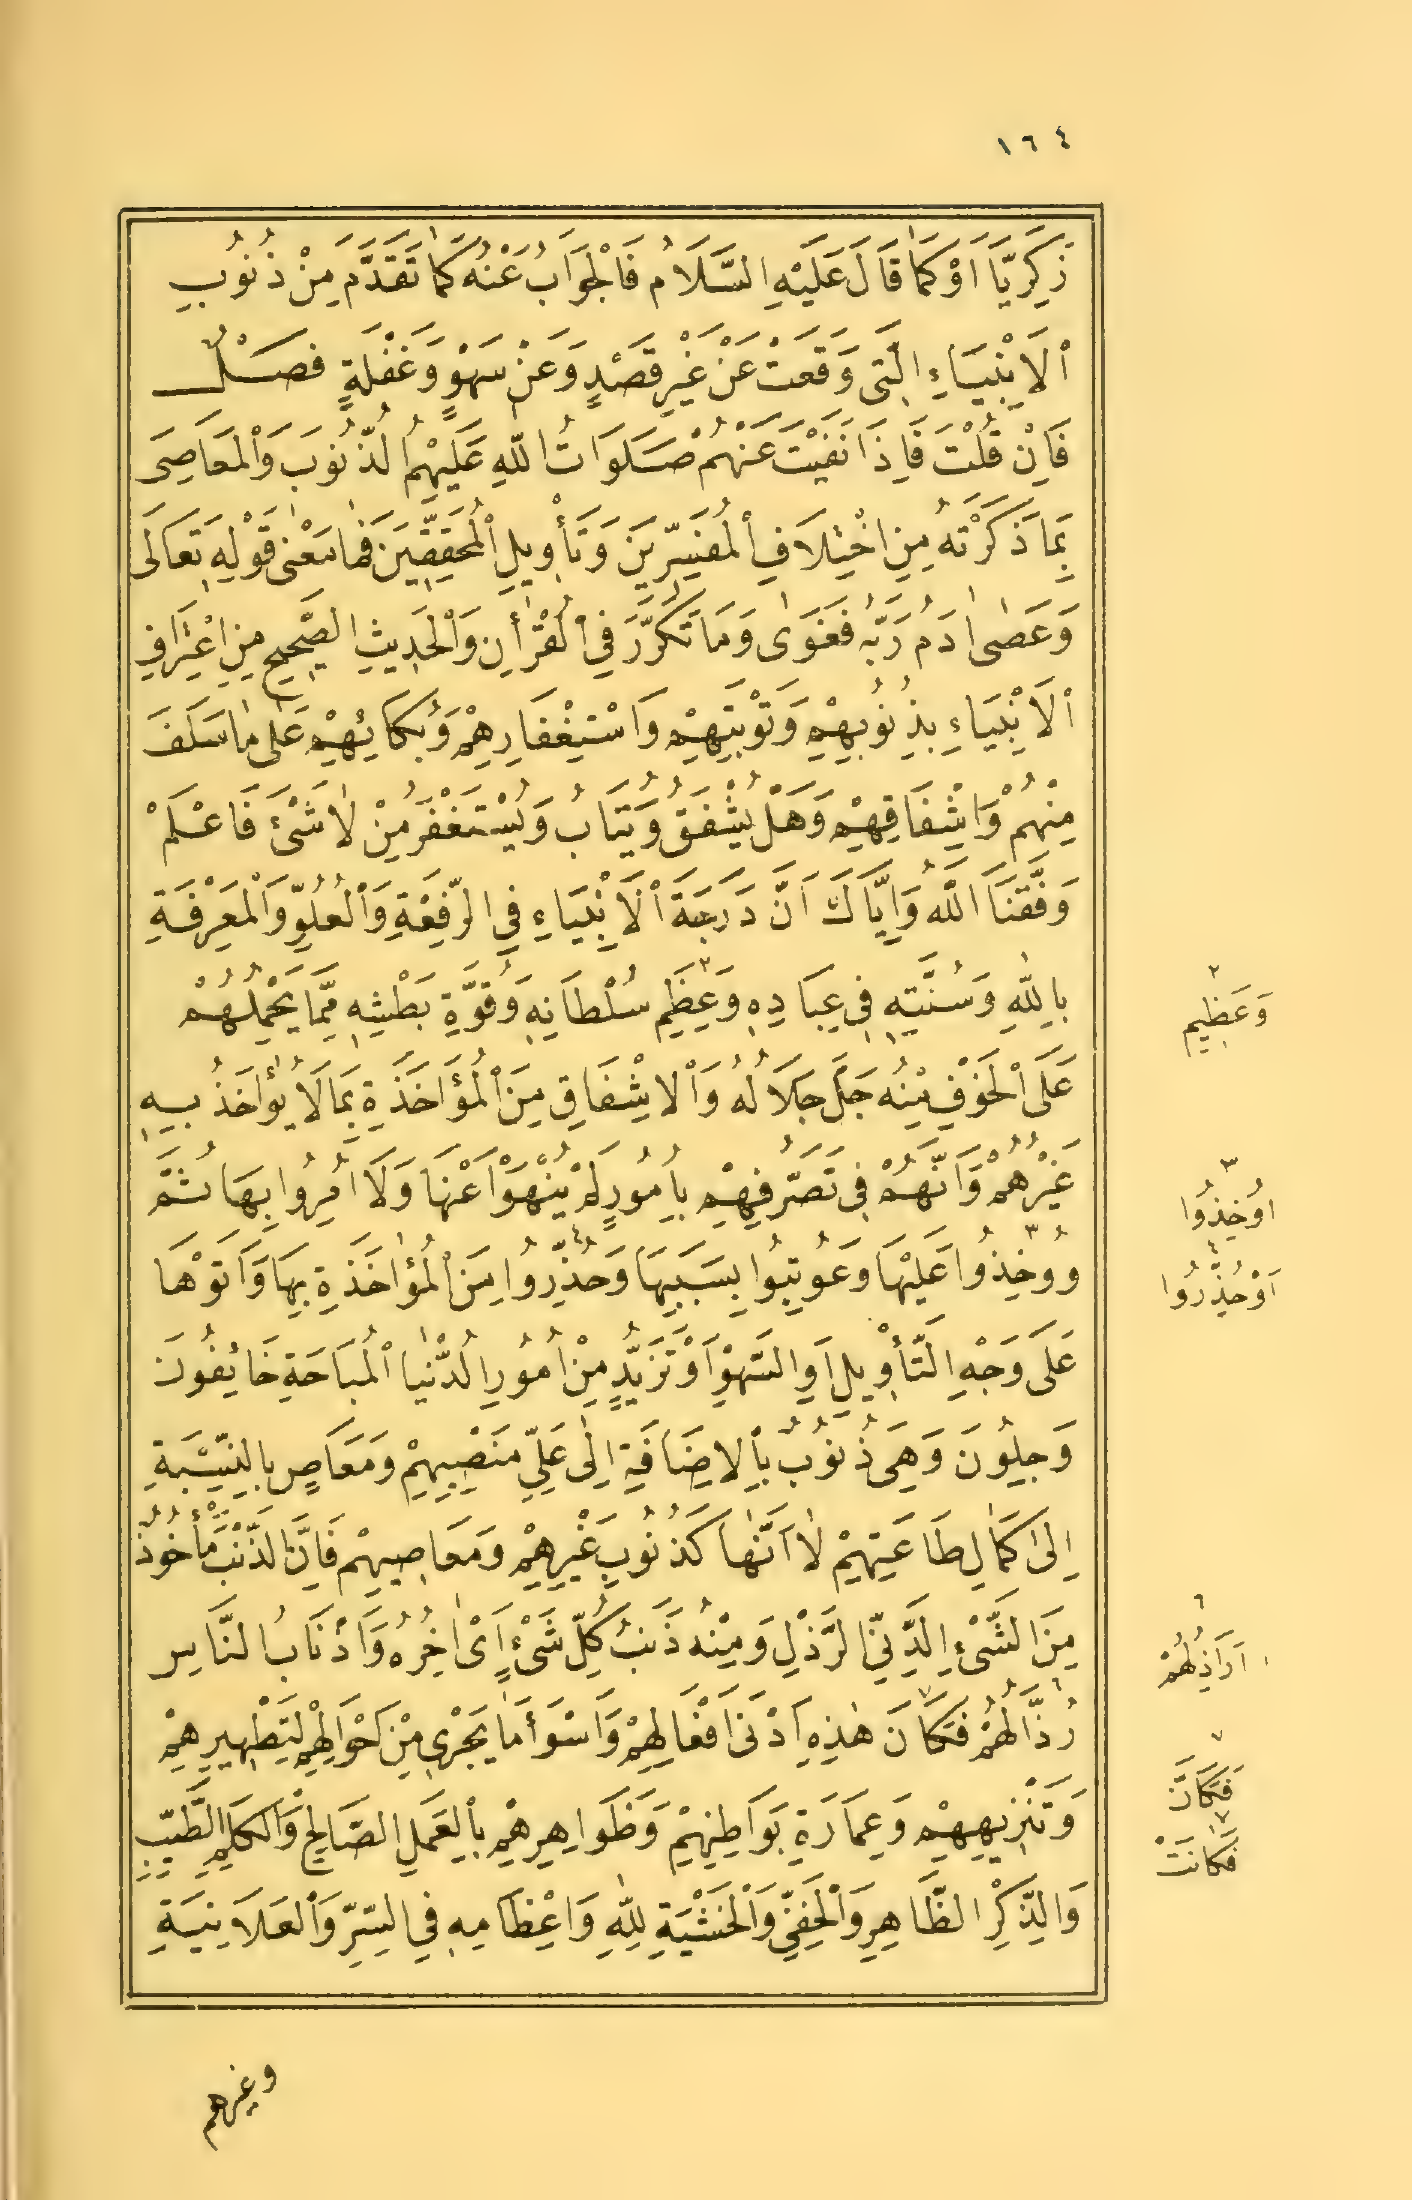 ١٦٤
زَكَرِيَّا اَوْ كَمَا قَالَ عَلَيْهِ السَّلَامُ فَالْجَوَابُ عَنْهُ كَمَا تَقَدَّمَ مِنْ ذُنُوبِ
اْلاَنْبِيَاءِ الَّتِى وَقَعَتْ عَنْ غَيْرِ قَصْدٍ وَعَنْ سَهْوٍ وَغَفْلَةٍ فصَــلْ
فَاِنْ قُلْتَ فَاِذَا نَفَيْتَ عَنْهُمْ صَلَوَاتُ اللّٰهِ عَلَيْهِمُ الذُّنُوبَ وَاْلمَعَاصِىَ
بِمَا ذَكَرْتَهُ مِنِ اخْتِلاَفِ اْلمُفَسِّرِينَ وَتَأْوِيلِ اْلمُحَقِّقِينَ فَمَا مَعْنٰى قَوْلِهِ تَعَالَى
وَعَصٰى اٰدَمُ رَبَّهُ فَغَوٰى وَمَا تَكَرَّرَ فِى اْلقُرْأٰنِ وَاْلحَدِيثِ الصَّحِيحِ مِنِ اعْتِرَافِ
اْلاَنْبِيَاءِ بِذُنُوبِهِمْ وَتَوْبَتِهِمْ وَاسْتِغْفَارِهِمْ وَبُكَائِهِمْ عَلٰى مَا سَلَفَ
مِنْهُمْ وَاِشْفَاقِهِمْ وَهَلْ يُشْفَقُ وَيُتَابُ وَيُسْتَغْفَرُ مِنْ لَا شَىْءَ فَاعْلَمْ
وَفَّقَنَا اللّٰهُ وَاِيَّاكَ اَنَّ دَرَجَةَ اْلاَنْبِيَاءِ فِى الرِّفْعَةِ وَاْلعُلُوِّ وَاْلمَعْرِفَةِ
بِاللّٰهِ وَسُنَّتِهِ فِى عِبَادِهِ وَعِظَمِ٢ سُلْطَانِهِ وَقُوَّةِ بَطْشِهِ مِمَّا يَحْمِلُهُمْ
عَلَى اْلخَوْفِ مِنْهُ جَلَّ جَلَالُهُ وَاْلاِشْفَاقِ مِنَ اْلمُؤَاخَذَةِ بِمَا لَا يُؤَاخَذُ بِهِ
غَيْرُهُمْ وَاَنَّهُمْ فِى تَصَرُّفِهِمْ بِاُمُورٍ لَمْ يُنْهَوْا عَنْهَا وَلَا اُمِرُوا بِهَا ثُمَّ
وُوخِذُوا٣ عَلَيْهَا وَعُوتِبُوا بِسَبَبِهَا وَحُذِّرُوا٤ مِنَ اْلمُؤَاخَذَةِ بِهَا وَاَتَوْهَا
عَلَى وَجْهِ التَّأْوِيلِ اَوِ السَّهْوِ اَوْ تَزَيُّدٍ مِنْ اُمُورِ الدُّنْيَا اْلمُبَاحَةِ خَائِفُونَ
وَجِلُونَ وَهِىَ ذُنُوبٌ بِاْلاِضَافَةِ اِلٰى عَلِىِّ مَنْصِبِهِمْ وَمَعَاصٍ بِالنِّسْبَةِ
اِلٰى كَمَالِ طَاعَتِهِمْ لَا اَنَّهَا كَذُنُوبِ غَيْرِهِمْ وَمَعَاصِيهِمْ فَاِنَّ الذَّنْبَ مَأْخُوذٌ
مِنَ الشَّىْءِ الدَّنِىِّ الرَّذْلِ وَمِنْهُ ذَنَبُ كُلِّ شَىْءٍ اَىْ اٰخِرُهُ وَاَذْنَابُ النَّاسِ
رُذَّالُهُمْ٦ فَكَانَ٧ هٰذِهِ اَدْنَى اَفْعَالِهِمْ وَاَسْوَأَ مَا يَجْرِى مِنْ اَحْوَالِهِمْ لِتَطْهِيرِهِمْ
وَتَنْزِيهِهِمْ وَعِمَارَةِ بَوَاطِنِهِمْ وَظَوَاهِرِهِمْ بِاْلعَمَلِ الصَّالِحِ وَاْلكَلِمِ الطَّيِّبِ
وَالذِّكْرِ الظَّاهِرِ وَاْلخَفِىِّ وَاْلخَشْيَةِ لِلّٰهِ وَاِعْظَامِهِ فِى السِّرِّ وَاْلعَلَانِيَةِ
وغيرهم
٢
وَعَظِيمِ
٣
اُوخِذُوا
٤
اَوْ حُذِّرُوا
٦
اَرَاذِلُهُمْ
٧
فَكَاَنَّ
٧
فَكَانَتْ